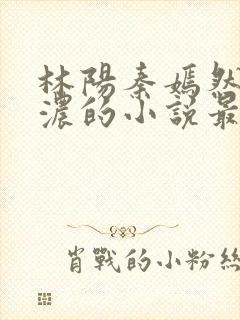 林陽秦嫣然
濃的小説最
肖戰的小粉絲